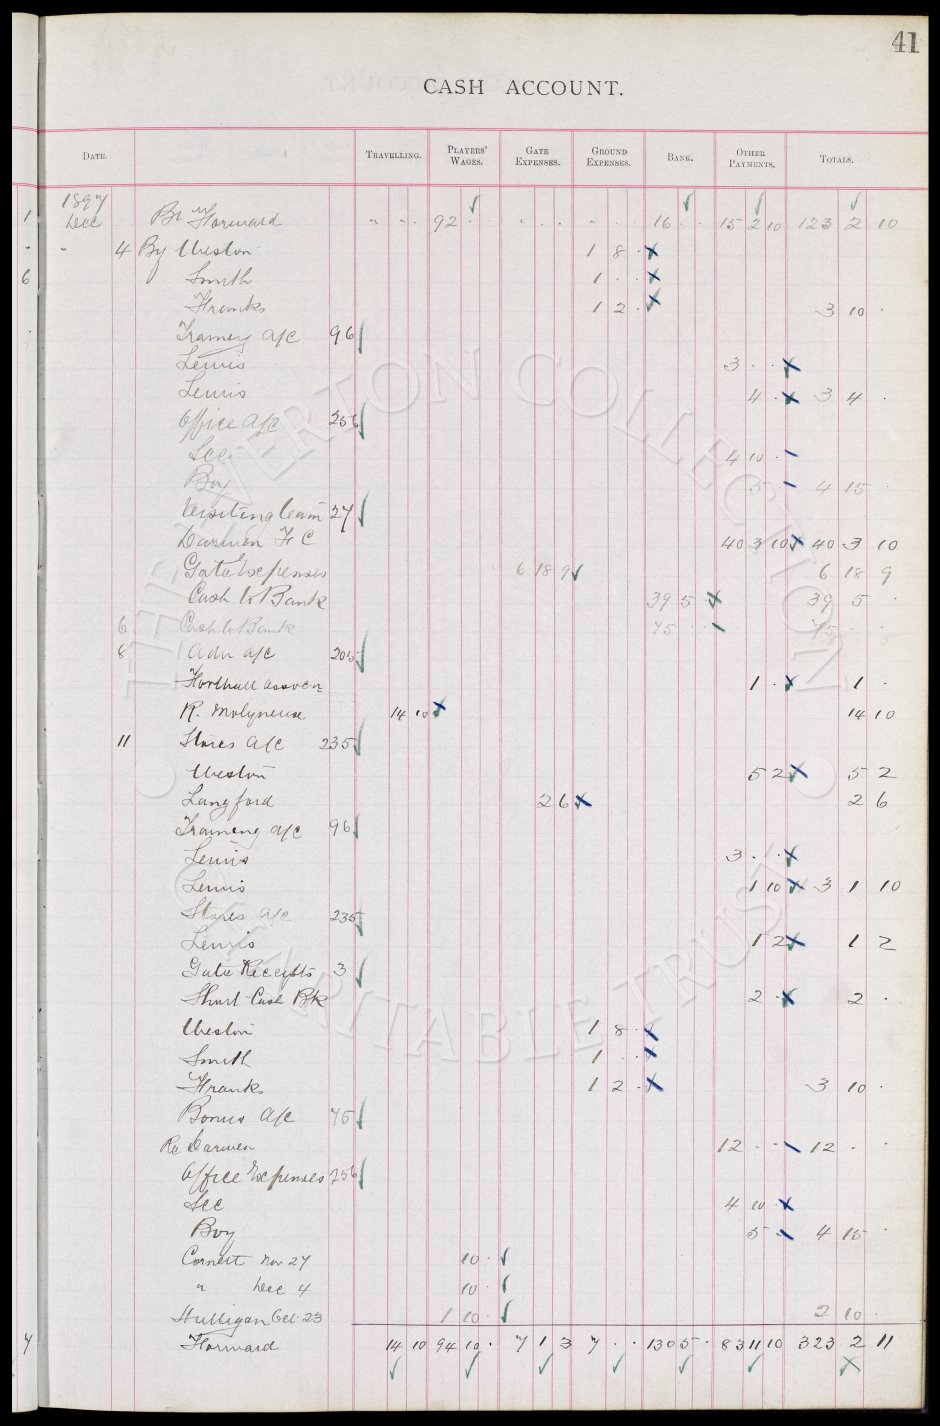 41
CASH ACCOUNT.
DATE. TRAVELLING. PLAYERS' WAGES. GATE EXPENSES. GROUND EXPENSES. BANK. OTHER PAYMENTS. TOTALS.
1897
1 Dec Bt Forward " . . . 92 . . . . . . . . 16 . . 15 2 10 123 2 10
" 4 By Weston 1 8 .
6 Smith 1 . .
Franks 1 2 . 3 10 .
Training a/c 96
Lewis 3 . .
Lewis 4 . 3 4 .
Office a/c 256
Sec 4 10 .
Boy 5 . 4 15 .
Visiting Team 27
Darwen F C 40 3 10 40 3 10
Gate Expenses 6 18 9 6 18 9
Cash to Bank 39 5 . 39 5 .
6 Cash to Bank 75 . . 75 . .
8 Adv a/c 205
1 . 1 .
R. Molyneux 14 10 14 10
11 Stores a/c 235
Weston 5 2 5 2
Langford 2 6 2 6
Training a/c 96
Lewis 3 . .
Lewis 1 10 3 1 10
Stores a/c 235
Lewis 1 2 1 2
Gate Receipts 3
Short Cash Bk 2 . 2 .
Weston 1 8 .
Smith 1 . .
Franks 1 2 . 3 10 .
Bonus a/c 75
Re Darwen 12 . . 12 . .
Office Expenses 256
Sec 4 10 .
Boy 5 . 4 15 .
Cornett Nov 27 10 .
" Dec 4 10 .
Hulligan Oct 23 1 10 . 2 10 .
7 Forward 14 10 94 10 . 7 1 3 7 . . 130 5 . 83 11 10 323 2 11
THE EVERTON COLLECTION
CHARITABLE TRUST